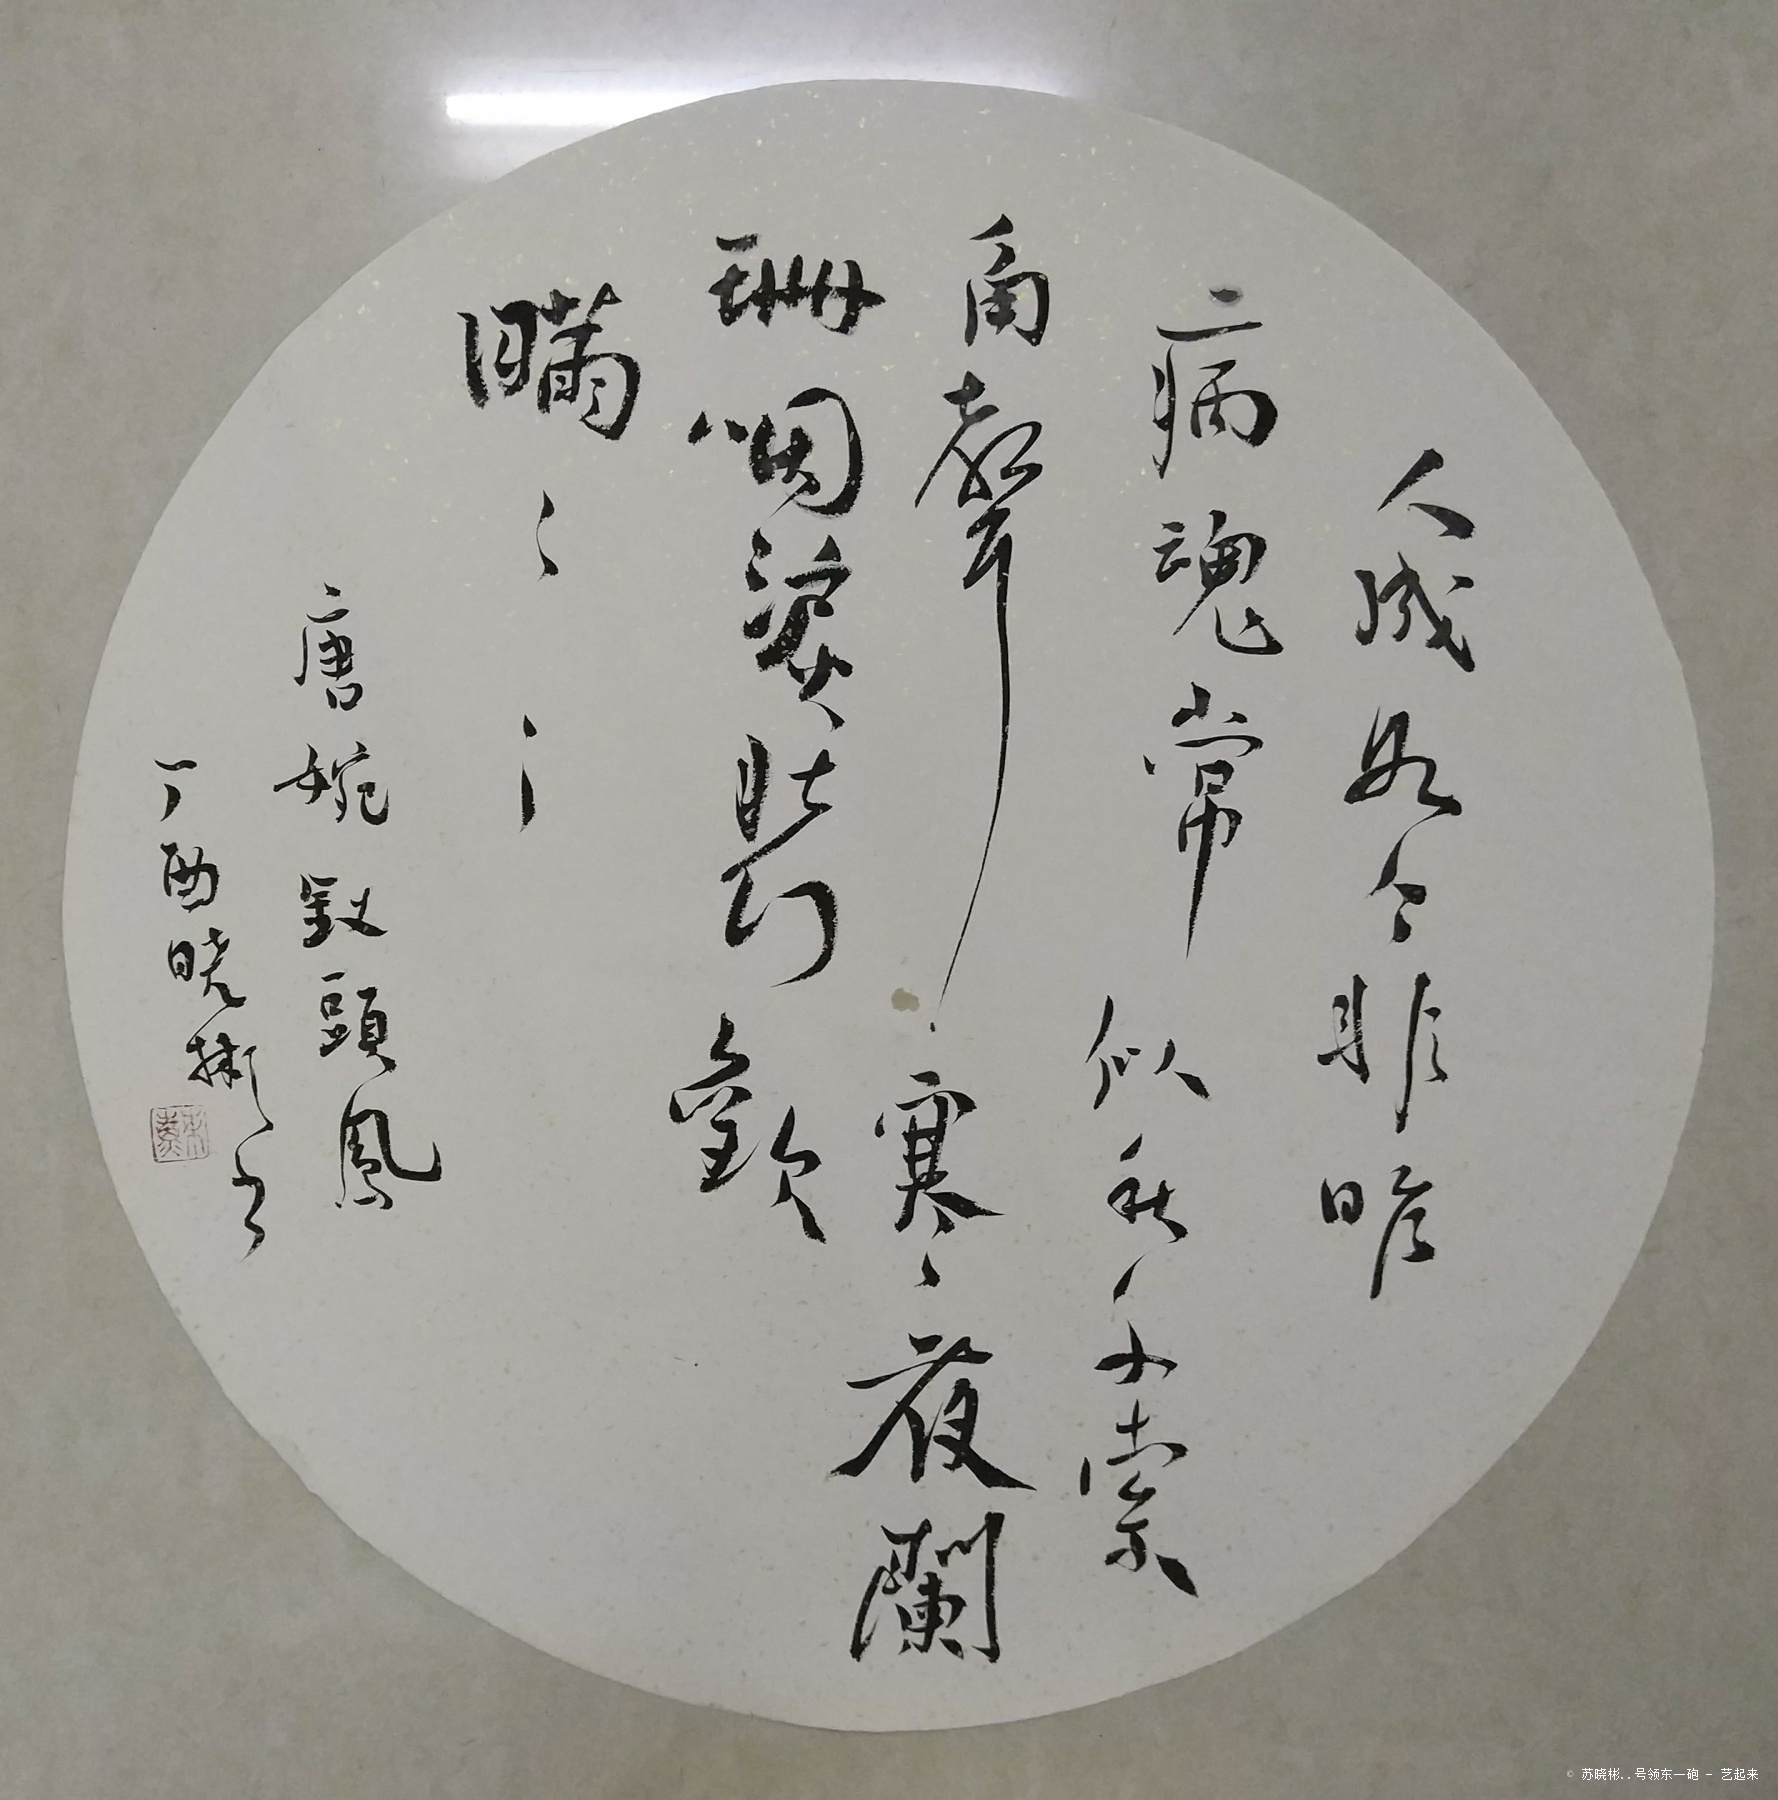 人成各今非昨
病魂常似秋千索
角聲寒夜闌
珊咽淚裝歡
瞞〻〻
唐婉釵頭鳳
丁酉曉彬書
© 苏晓彬..号领东一砲 - 艺起来